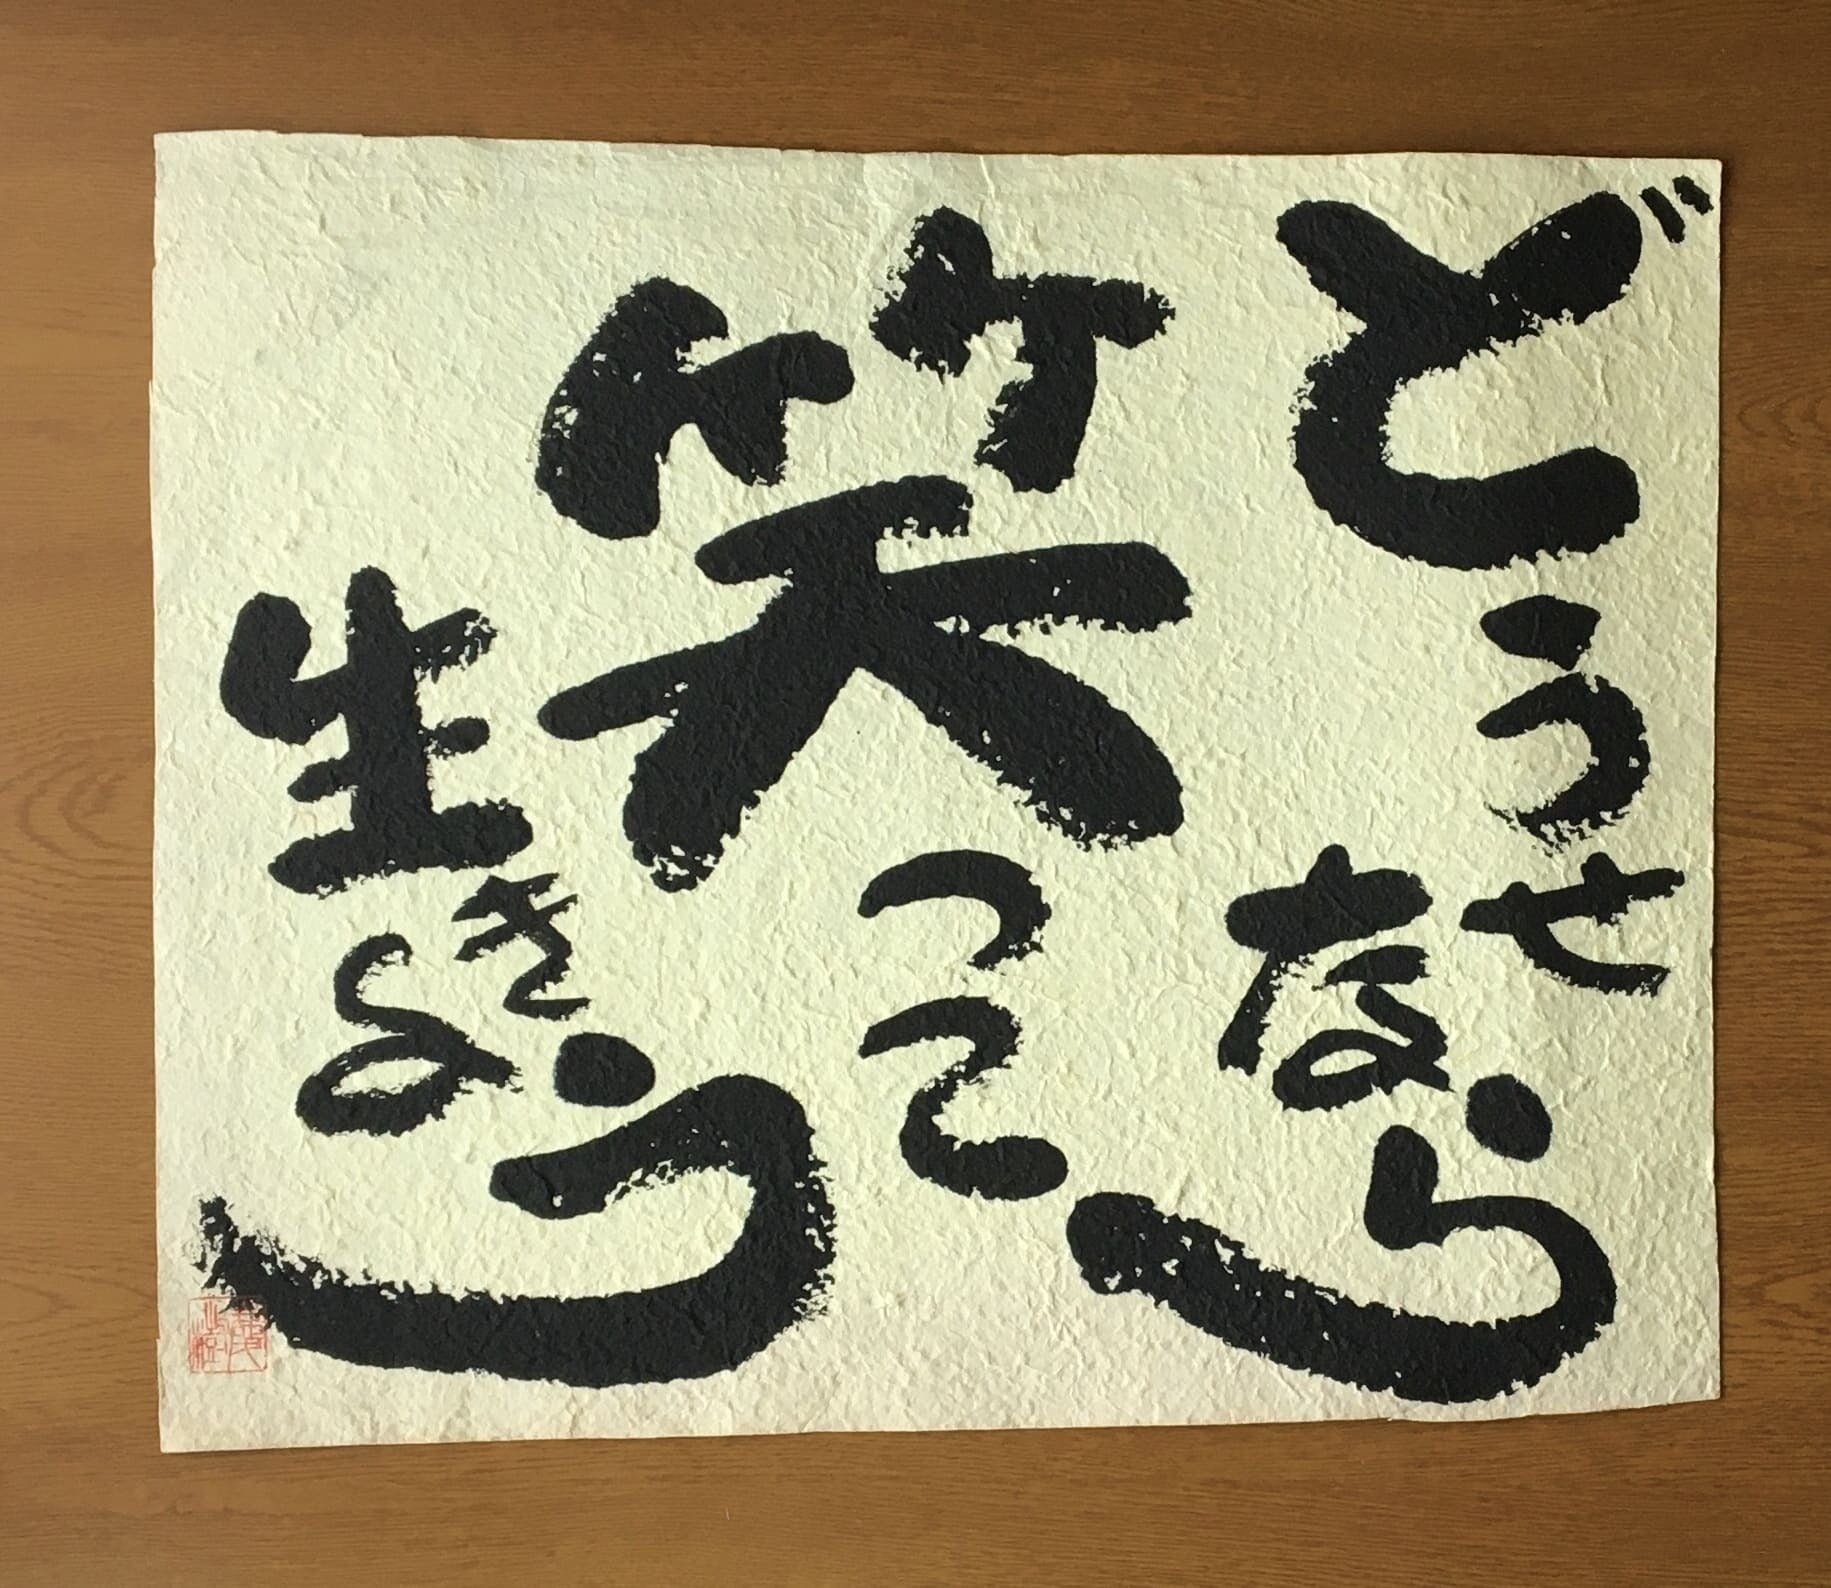 どうせならら
笑って
生きよう